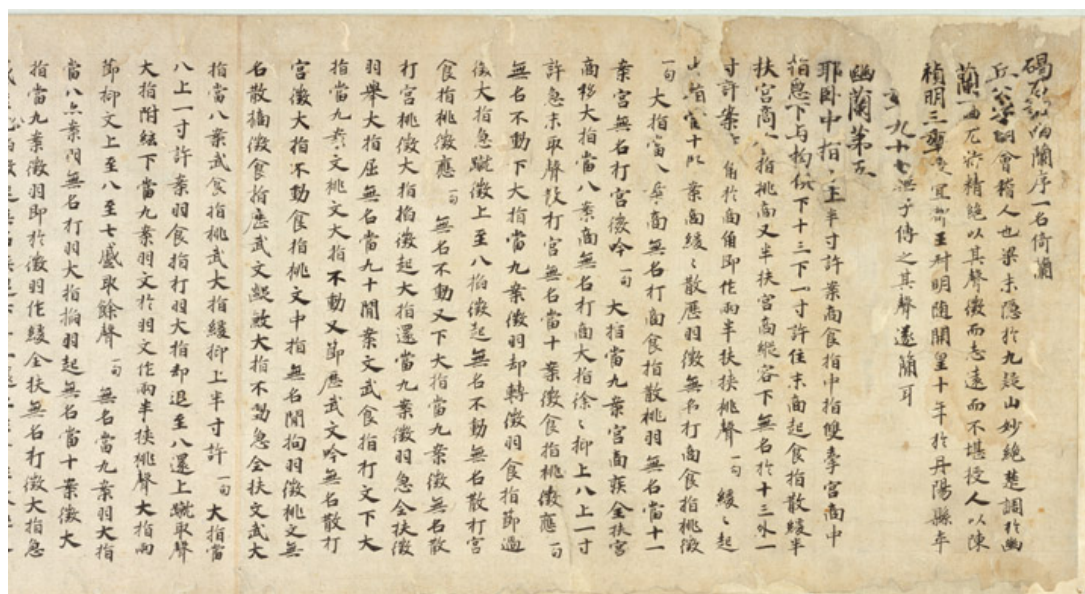 碣石調幽蘭序一名倚蘭
丘公字明會稽人也梁末隱於九疑山妙絕楚調於幽
蘭一曲尤特精絕以其聲微而志遠而不堪授人以陳
禎明三年授宜都王叔明隨開皇十年於丹陽縣卒
九十七無子傳之其聲遂簡耳
幽蘭第五
耶臥中指上半寸許案商食指中指雙牽宮商中
指急下与拘俱下十三下一寸許住末商起食指散緩半
扶宮商食指挑商又半扶宮商縱容下無名於十三外一
寸許案商角於商角即作兩半扶挾挑聲一句 緩〻起
指當十案商緩〻散歷羽徵無名打商食指挑徵
一句 大指當八案商無名打商食指散挑羽無名當十一
案宮無名打宮徵吟一句 大指當九案宮商疾全扶宮
商移大指當八案商無名打商大指徐〻抑上八上一寸
許急末取聲散打宮無名當十案徵食指挑徵應一句
無名不動下大指當九案徵羽却轉徵羽食指節過
徵大指急蹴徵上至八掐徵起無名不動無名散打宮
食指挑徵應一句 無名不動又下大指當九案徵無名散
打宮挑徵大指掐徵起大指還當九案徵羽急全扶徵
羽舉大指屈無名當九十間案文武食指打文下大
指當九案文挑文大指不動又節歷武文吟無名散打
宮徵大指不動食指挑文中指無名間拘羽徵挑文無
名散摘徵食指歷武文大指不動急全扶文武大
指當八案武食指挑武大指緩抑上半寸許一句 大指當
八上一寸許案羽食指打羽大指却退至八還上蹴取聲
大指附絃下當九案羽文於羽文作兩半挾挑聲大指兩
節抑文上至八至七慼取餘聲一句 無名當九案羽大指
當八案間無名打羽大指掐羽起無名當十案徵大
指當九案徵羽即於徵羽作緩全扶無名打徵大指急